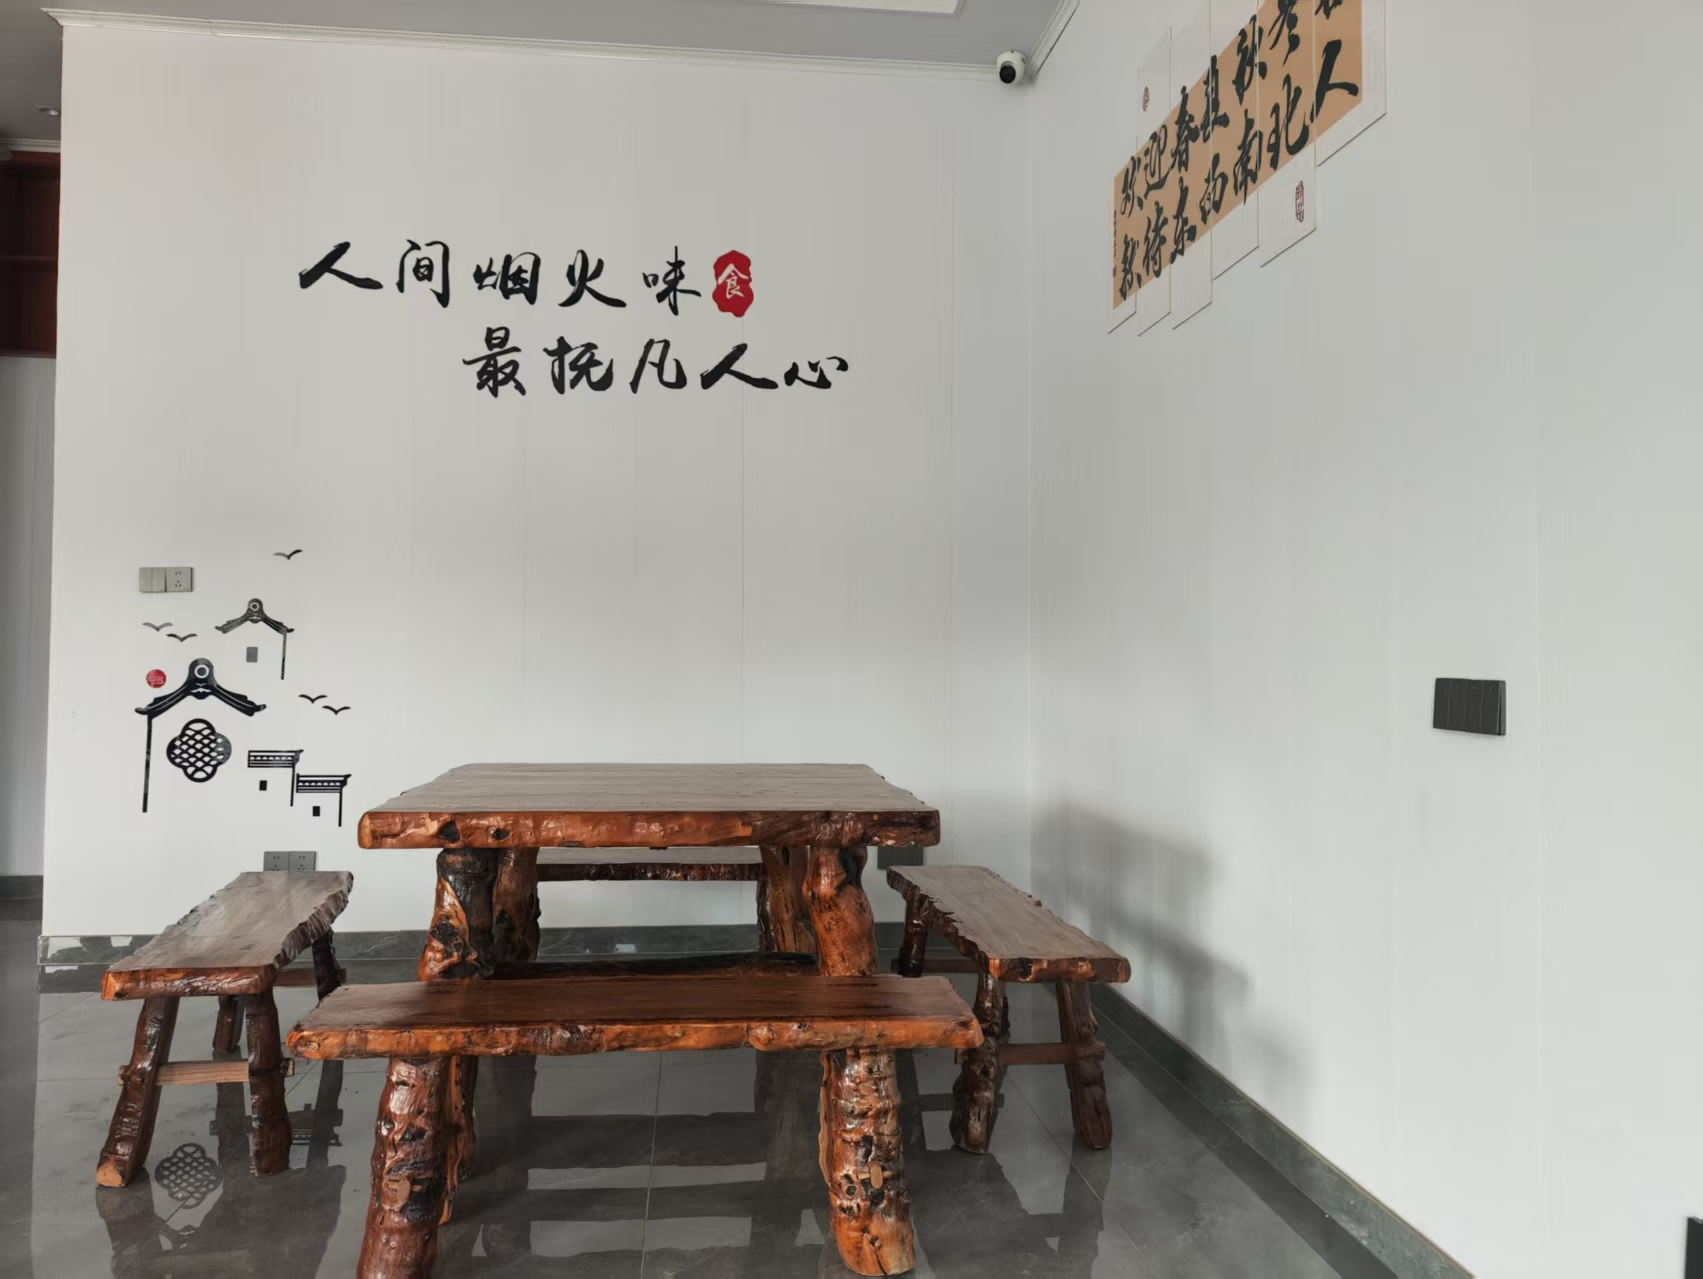 人间烟火味 食
最抚凡人心
欢迎春夏秋冬客
款待东西南北人